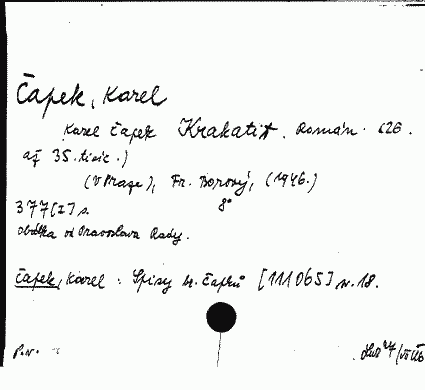 Čapek, Karel
Karel Čapek Krakatit. Román. (26.
až 35. tisíc.)
(V Praze), Fr. Borový, (1946.)
377[I] s. 8°
obálka od Pravoslava Rady.
Čapek, Karel : Spisy br. Čapků [111065] sv. 18.
P.N.